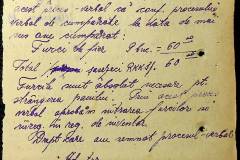 acest proces-verbal că conf. procesului
verbal de cumpărare la data de mai
sus am cumpărat:
Furci de fier 9 buc. = 60 —
Total șaizeci = 60 —
Furcile sunt absolut necesare pt.
strângerea paiului. Prin acest proces
verbal aprobăm intrarea furcilor cu
în reg. de inventar.
Drept care am semnat procesul-verbal